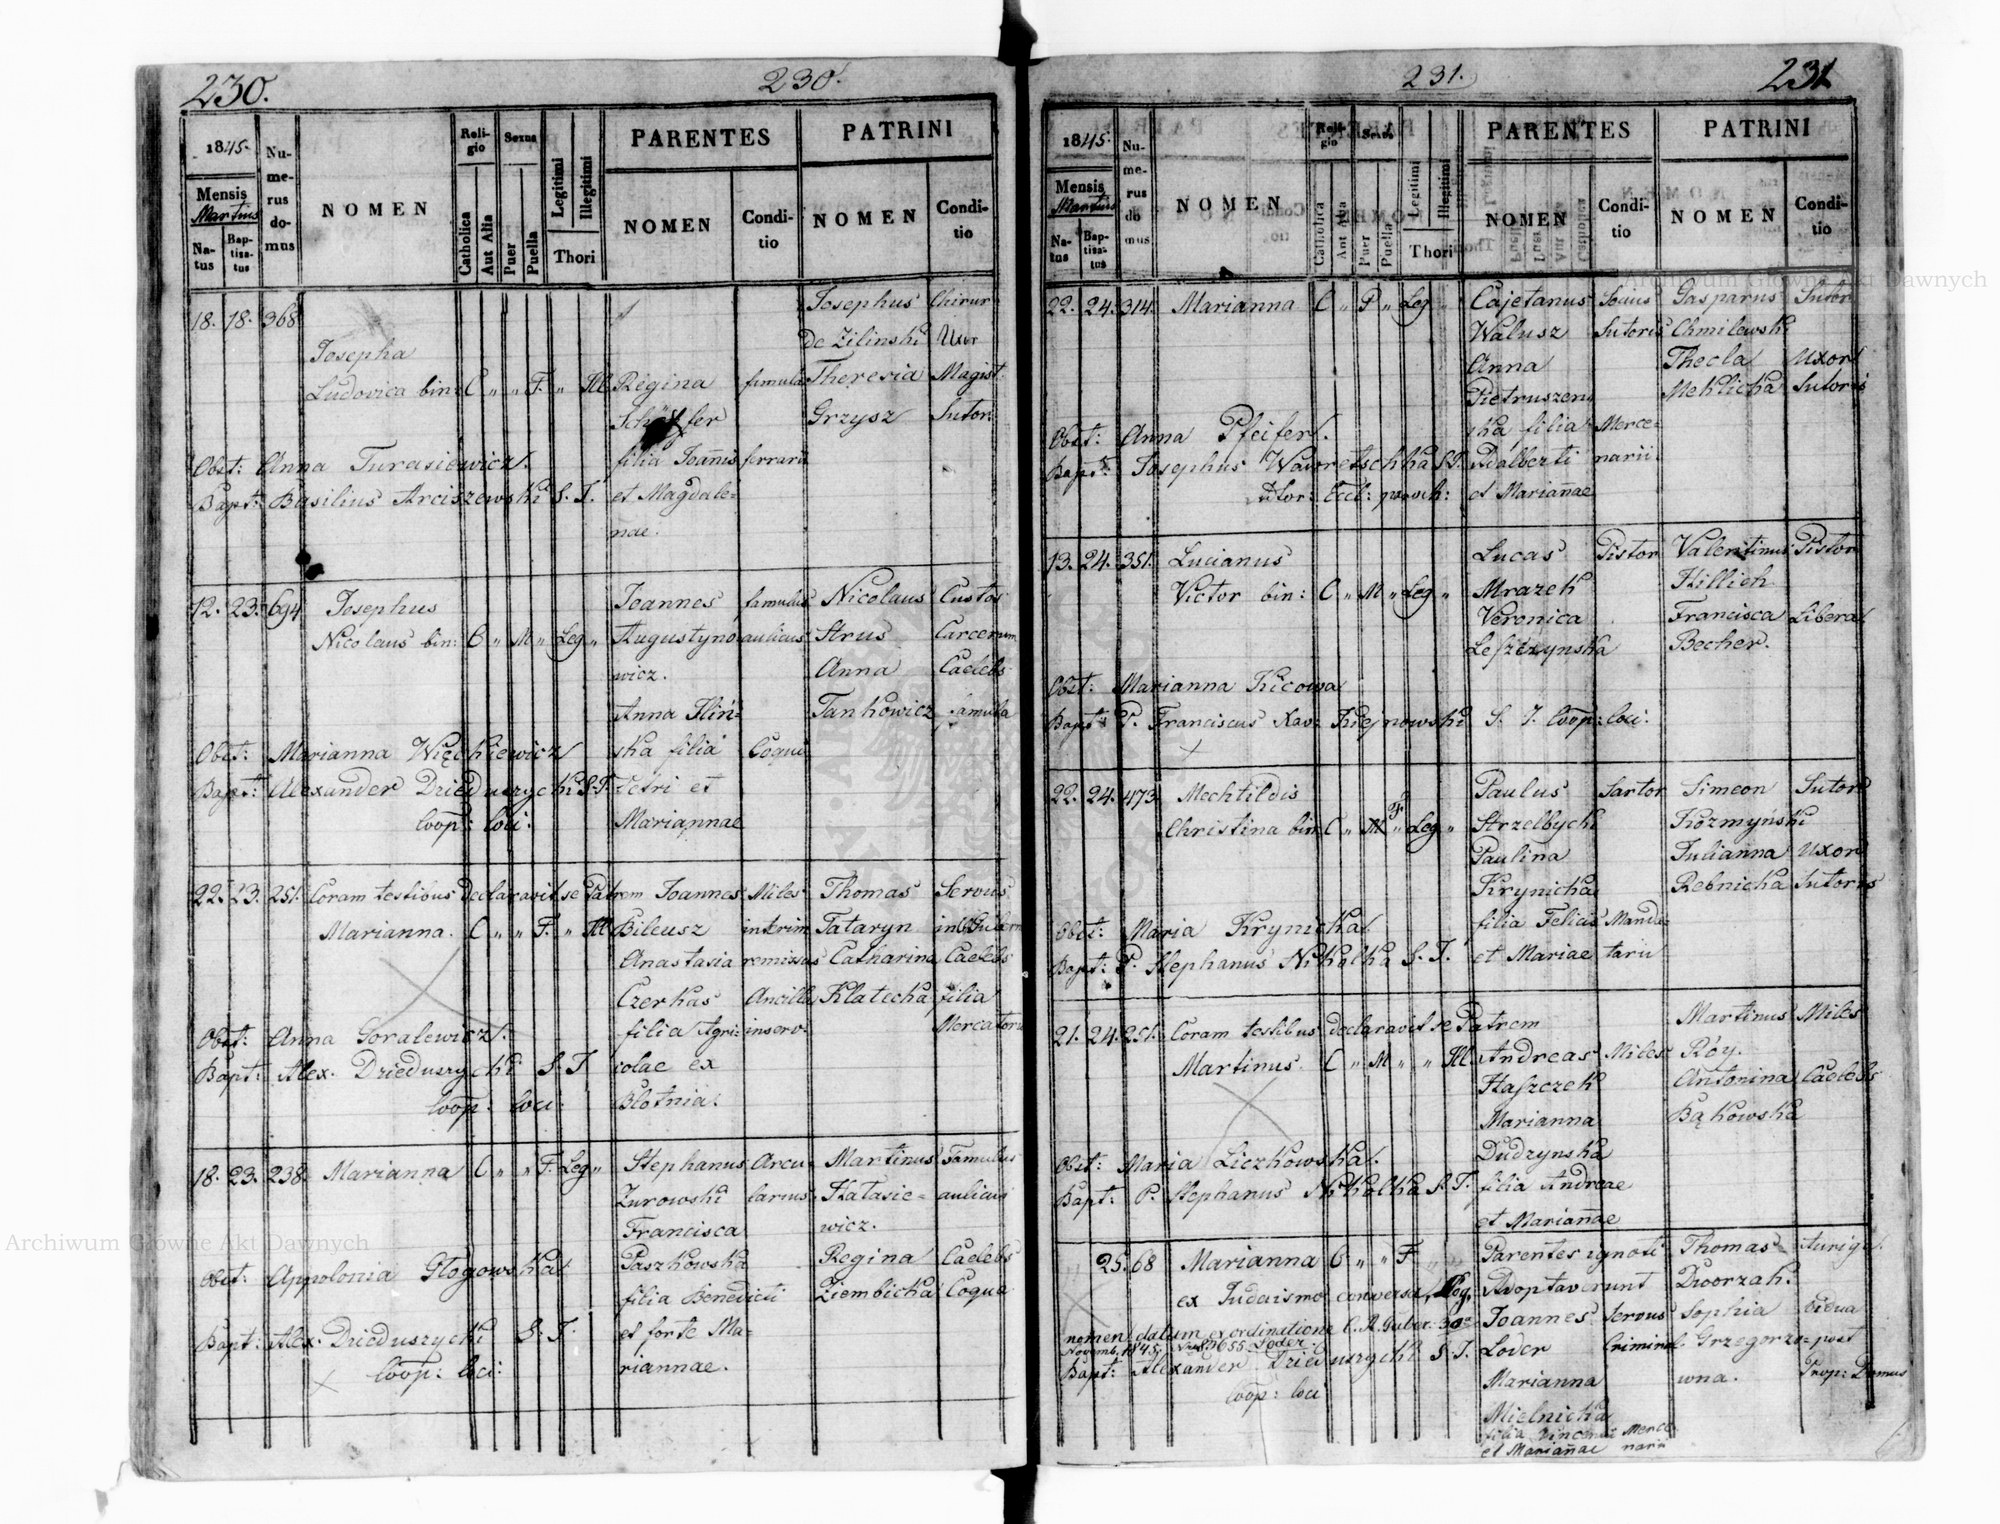 230. 230.
1845. Numerus domus NOMEN Religio Sexus Legitimi Illegitimi PARENTES PATRINI
Mensis Martius Catholica Aut Alia Puer Puella Thori NOMEN Conditio NOMEN Conditio
Natus Baptisatus
Josephus Chirur
18. 18. 368 de Zilinski Uxor
Josepha
Ludovica bin: C " " F. " Ill Regina famula Theresia Magist.
Schäffer Grzysz Sutor:
Obst: Anna Jurasiewicz. filia Joannis ferrarii
Bapt: Basilius Arciszewski S. J. et Magdale=
nae.
12. 23. 694 Josephus Joannes famulus Nicolaus Custos
Nicolaus bin: C " M " Leg " Augustyno aulicus Strus Carcerum
wicz. Anna Caelebs
Anna Iliń= Jankowicz famula
Obst: Marianna Więckiewicz ska filia Coqui
Bapt: Alexander Dzieduszycki S. J. Petri et
Coop: loci: Mariannae
22. 23. 251. Coram testibus declaravit se Patrem Joannes Miles Thomas Servus
Marianna. C " " F. " Ill Bileusz interim Tataryn
Anastasia remissus Catharina Caelebs
Czerkas Ancilla Klatecka filia
Obst: Anna Goralewicz. filia Agri= inserv= Mercatoris
Bapt: Alex. Dzieduszycki S. J. colae ex
Coop: loci: Blotnia.
18. 23. 238. Marianna C " " F. Leg " Stephanus Arcu Martinus Famulus
Zurowski larius Hatasie= aulicus
Francisca wicz.
Obst: Appolonia Głogowska Paszkowska Regina Caelebs
filia Benedicti Ziembicka Coqua
Bapt: Alex. Dzieduszycki S. J. et forte Ma=
Coop: loci: riannae.
231. 231
1845. Numerus domus NOMEN Religio Sexus Legitimi Illegitimi PARENTES PATRINI
Mensis Martius Catholica Aut Alia Puer Puella Thori NOMEN Conditio NOMEN Conditio
Natus Baptisatus
22. 24. 314. Marianna C " P " Leg " Cajetanus Socius Gasparus Sutor
Walusz Sutoris Chmilewski
Anna Thecla Uxor
Pietruszew Mehlicka Sutoris
Obst: Anna Pfeifer. ska filia Merce=
Bapt: Josephus Wavretschka S. J. Adalberti narii
Ecl: paroch: et Mariannae
13. 24. 351. Lucianus Lucas Pistor Valentinus Pistor
Victor bin: C " M " Leg " Mrazek Hillich
Veronica Francisca Libera
Leszczynska Becher.
Obst: Marianna Kicowa
Bapt: P. Franciscus Xav: Kiejnowski S. J. Coop: loci.
22. 24. 473. Mechtildis Paulus Sartor Simeon Sutor
Christina bin C " M F " Leg " Strzelbycki Kozmynski
Paulina Julianna Uxor
Krynicka Rebnicka Sutoris
Obst: Maria Krynicka. filia Felicis Manda=
Bapt: P. Stephanus Nikolka S. J. et Mariae tarii
21. 24. 251. Coram testibus declaravit se Patrem Martinus Miles
Martinus. C " M " " Ill Andreas Miles Róy.
Haszczek Antonina Caelebs
Marianna Bąkowska
Obst: Maria Liczkowska. Dudzynska
Bapt: P. Stephanus Nikolka S. J. filia Andreae
et Mariannae
25. 68 Marianna C " " F " " Parentes ignoti Thomas Auriga.
ex Judaismo conversa Adoptaverunt Dworzak.
nomen datum ex ordinatione C. R. Guber. 30a Joannes Servus Sophia vidua
Novemb. 1845. Nro 83655 Loder.
Bapt: Alexander Dzieduszycki S. J. Loder Criminal: Grzegorzo= post
Coop: loci Marianna wna. Prop: Domus
Mielnicka
filia Vincentii Merce
et Mariannae narii
Archiwum Główne Akt Dawnych
Archiwum Główne Akt Dawnych